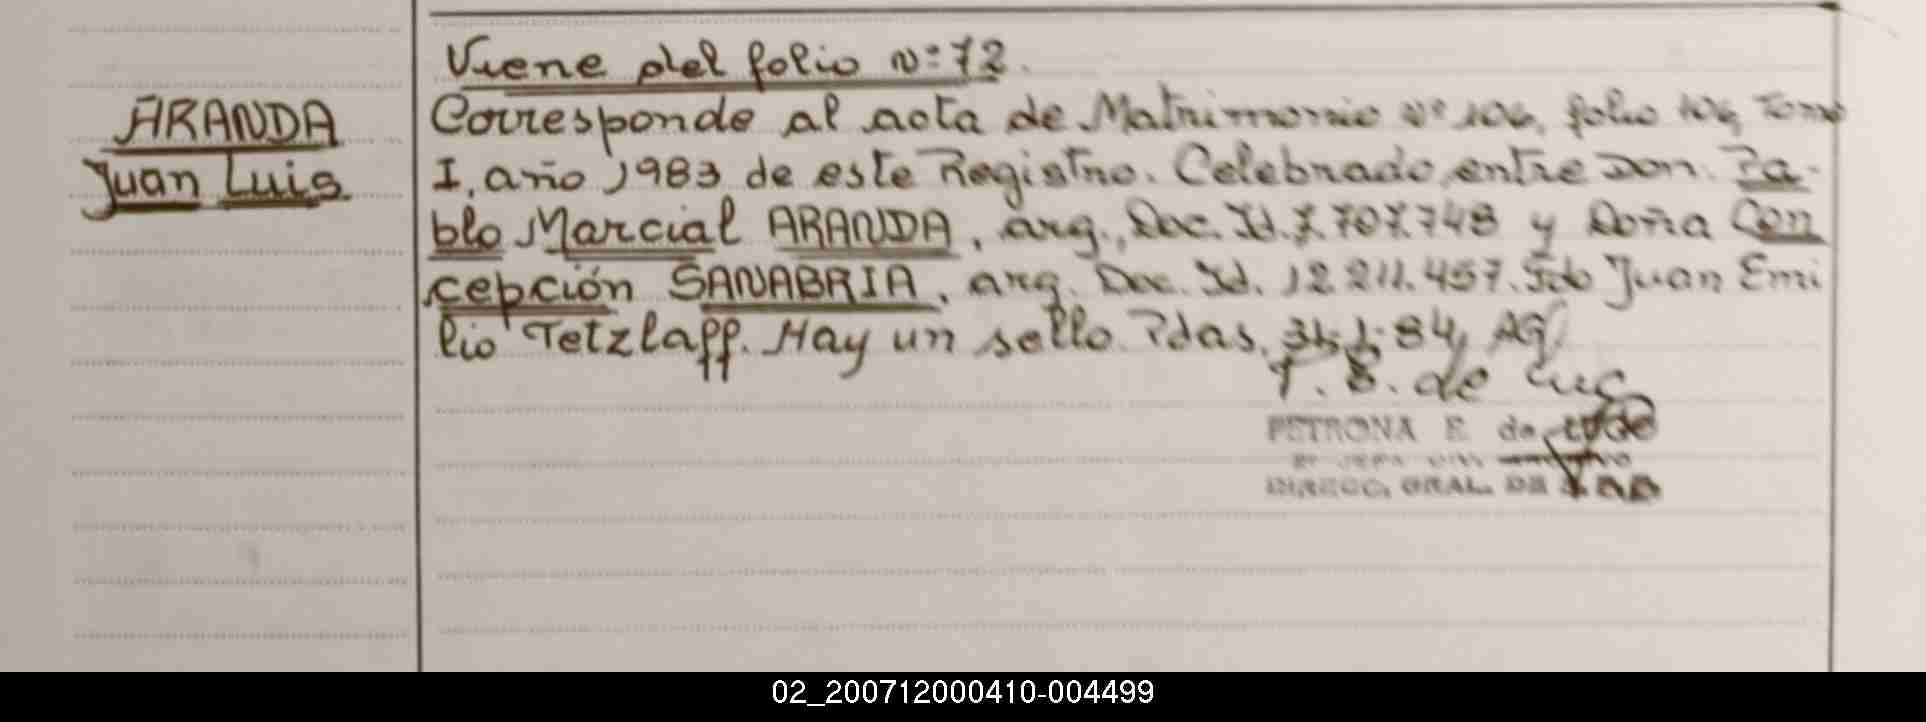 Viene del folio Nº 72.
ARANDA
Juan Luis.
Corresponde al acta de Matrimonio Nº 106, folio 106, Tomo
I, año 1983 de este Registro. Celebrado entre Don. Pa-
blo Marcial ARANDA, arg., Doc. Id. 7.707.748 y Doña Con
cepción SANABRIA, arg. Doc. Id. 12.211.457. Fdo Juan Emi
lio Tetzlaff. Hay un sello. Pdas. 84,
de
PETRONA E. de
DIRECC. GRAL. DE
02_200712000410-004499